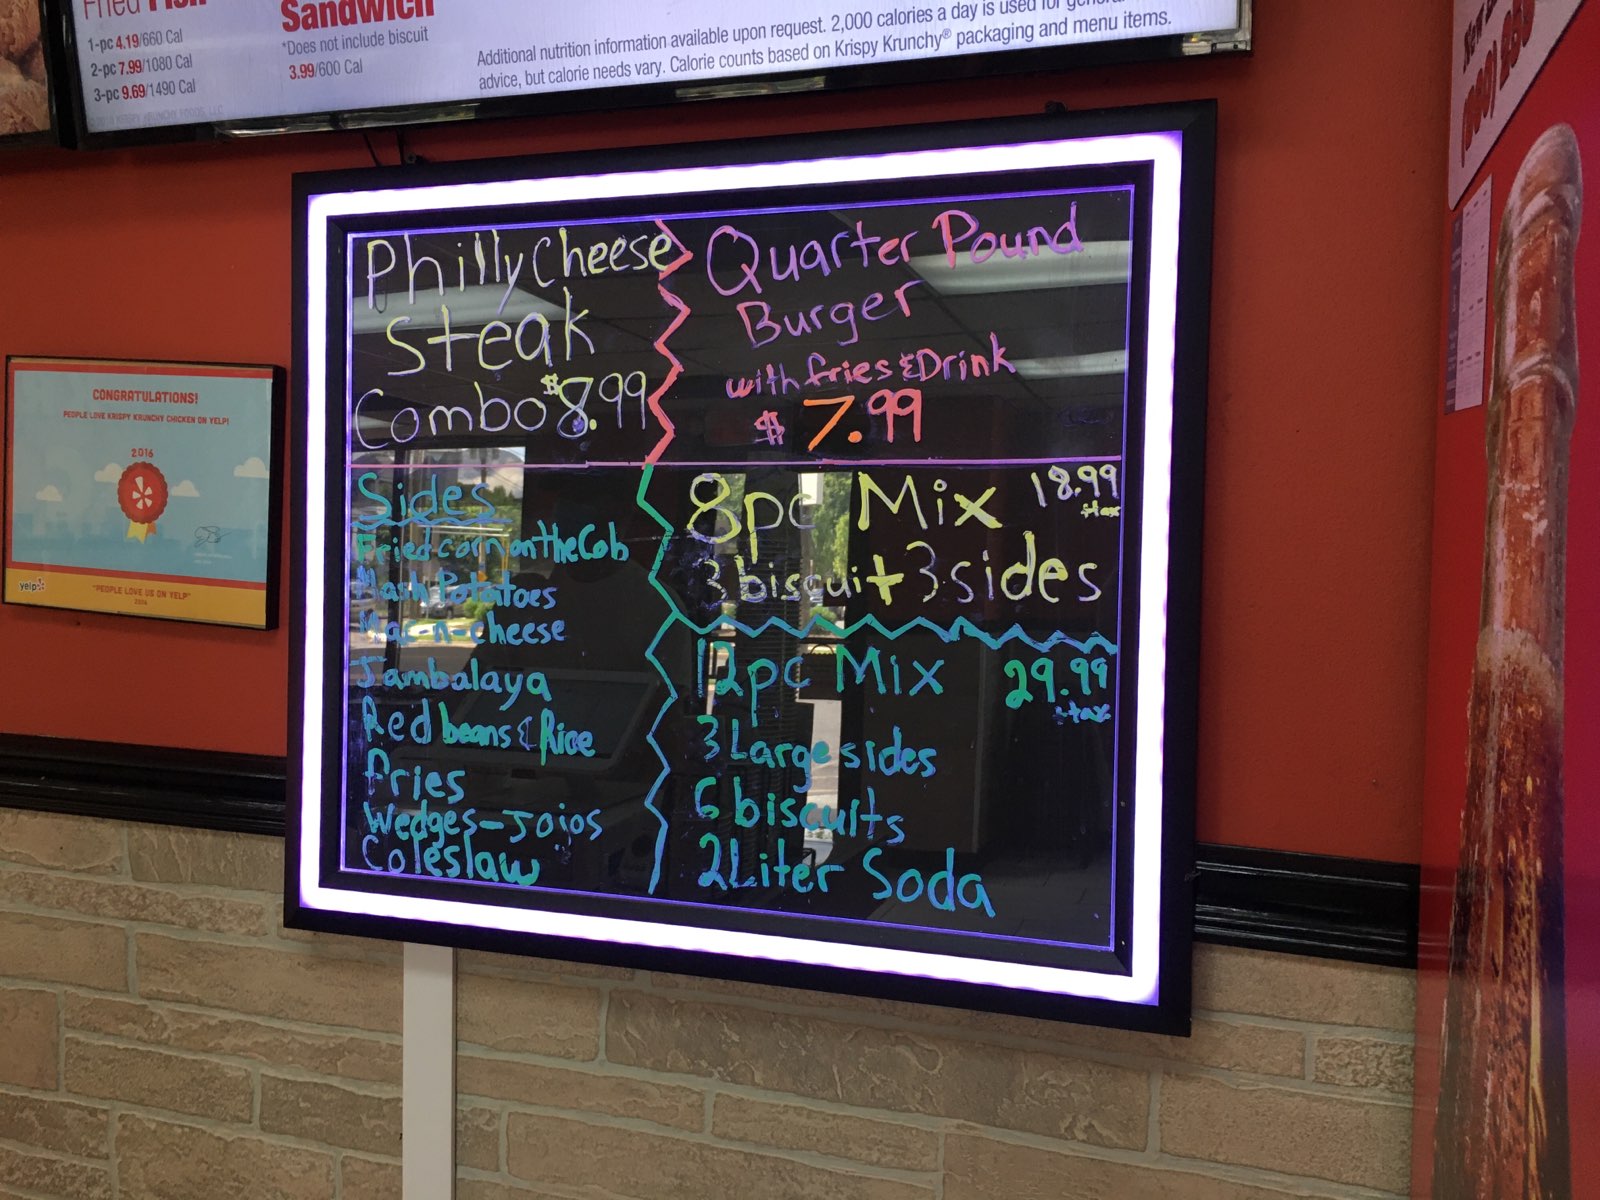 Fried Fish
1-pc 4.19/660 Cal
2-pc 7.99/1080 Cal
3-pc 9.69/1490 Cal
Sandwich
*Does not include biscuit
3.99/600 Cal
Additional nutrition information available upon request. 2,000 calories a day is used for general
advice, but calorie needs vary. Calorie counts based on Krispy Krunchy® packaging and menu items.
Philly Cheese
Steak
Combo $8.99
Quarter Pound
Burger
with fries & Drink
$7.99
Sides
Fried corn on the Cob
Mash Potatoes
Mac-n-cheese
Jambalaya
Red beans & Rice
fries
Wedges-Jojos
Coleslaw
8pc Mix 18.99
+tax
3 biscuit 3 sides
12pc Mix 29.99
+tax
3 Large sides
6 biscuits
2 Liter Soda
CONGRATULATIONS!
PEOPLE LOVE KRISPY KRUNCHY CHICKEN ON YELP!
2016
yelp
"PEOPLE LOVE US ON YELP"
2016